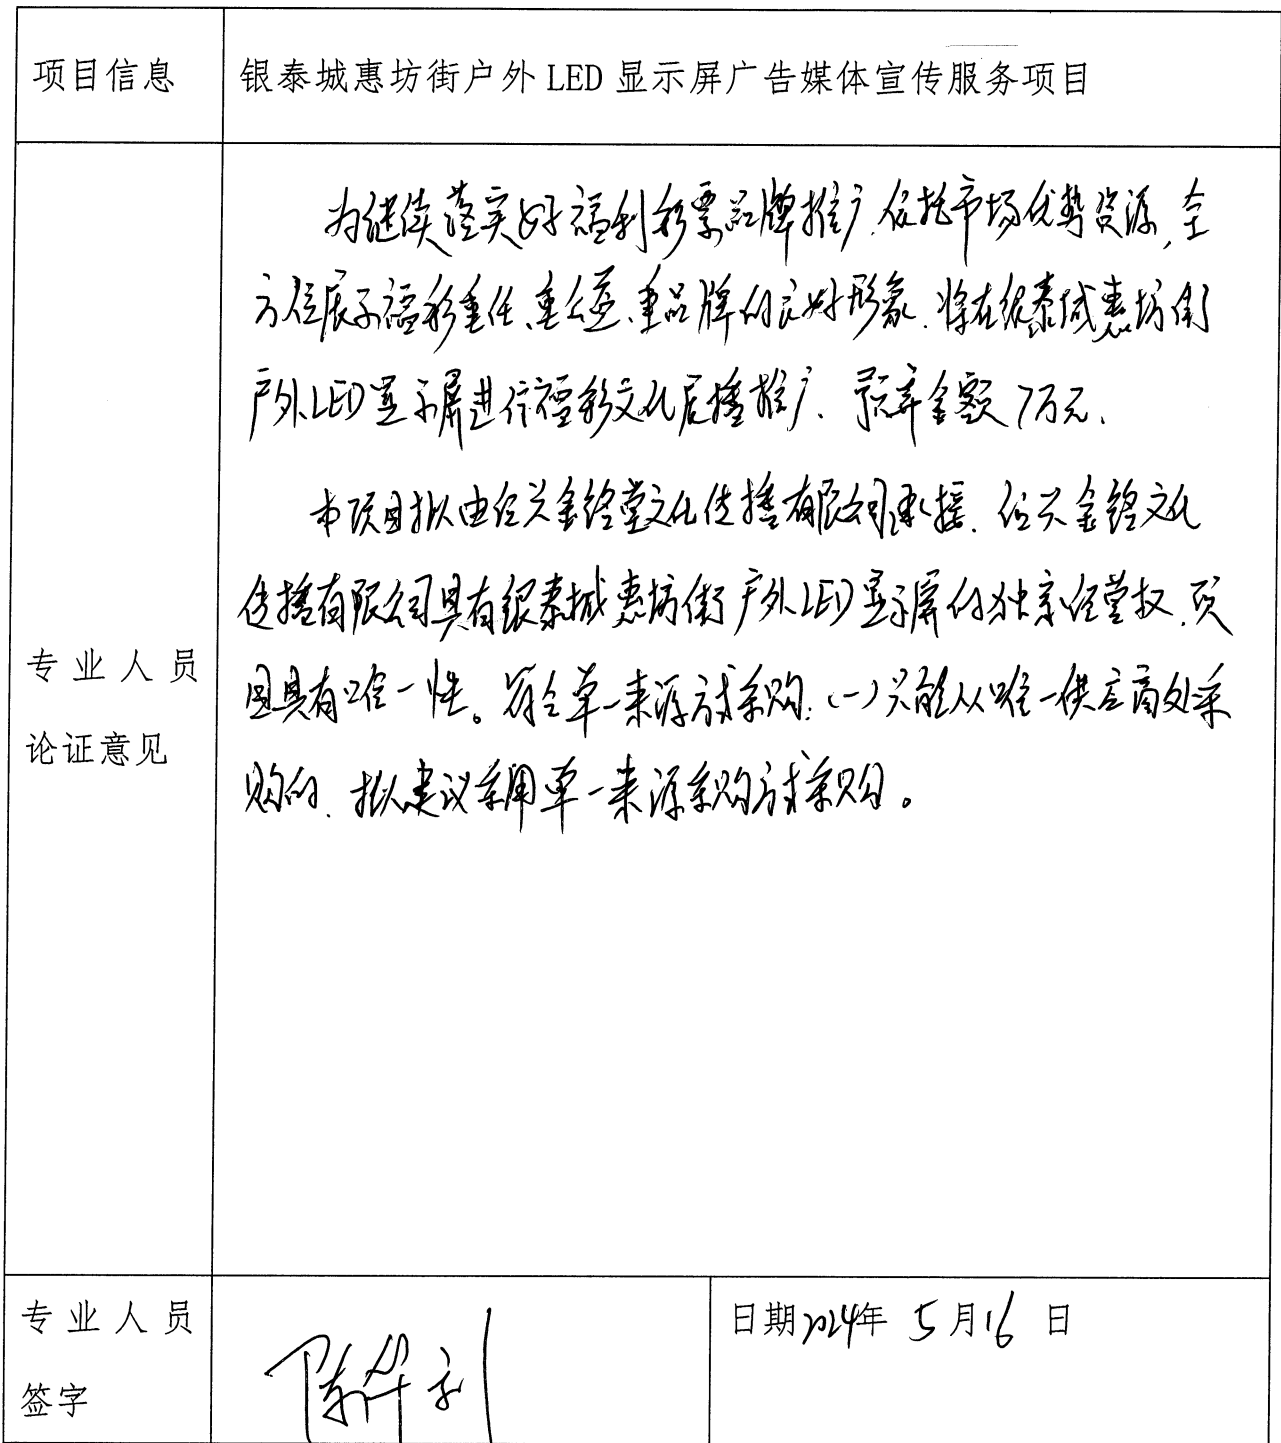 项目信息
银泰城惠坊街户外 LED 显示屏广告媒体宣传服务项目
专业人员
论证意见
为继续落实好福利彩票品牌推广,依托市场优势资源,全
方位展示福彩重任、重公益、重品牌的良好形象,将在银泰城惠坊街
户外LED显示屏进行福彩文化展播推广,预算金额7万元,
本项目拟由绍兴金铭堂文化传播有限公司承接,绍兴金铭文化
传播有限公司具有银泰城惠坊街户外LED显示屏的独家经营权,项
目具有唯一性。符合单一来源方式采购:(一)只能从唯一供应商处采
购的,拟建议采用单一来源采购方式采购。
专业人员
签字
日期2024年 5月16日